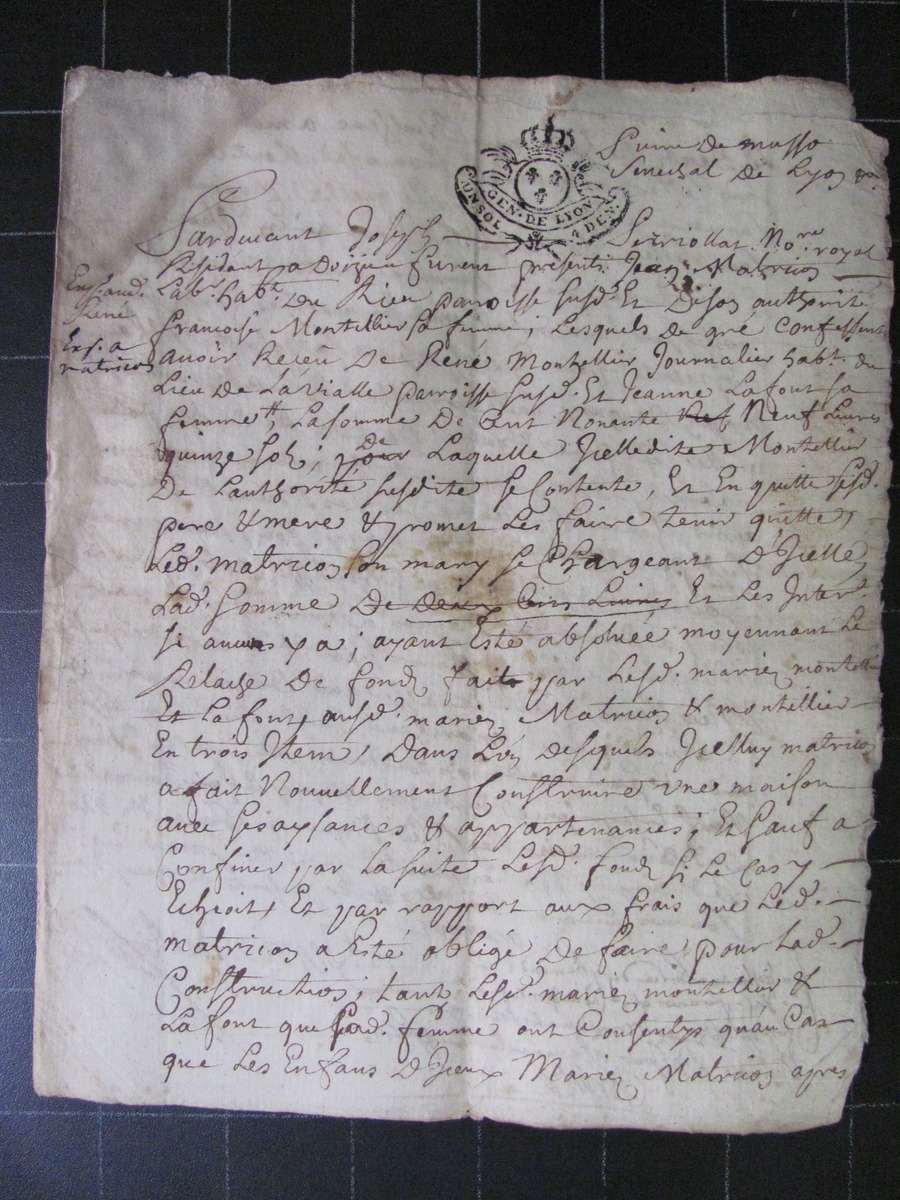 Senechal de Lyon
CONSOL GEN. DE LYON 4 DEN.
Pardevant Joseph Serriollat No.re royal
Residant a Doizieu furent presents Jean Matricon
Lab.r hab.t Du Rieu parroisse susd. Et De son authorité
francoise Montellier sa femme; Lesquels de gré confessent
Exp. aud.
René
Exp. a
matricon
avoir Receu De René Montellier Journalier hab.t du
Lieu de Lavialle parroisse susd. Et Jeanne Lafont sa
femme, La somme De Cent Nonante Neuf Livres
quinze sols; De Laquelle Jcelledite Montellier
De Lauthorité susdite se Contente, Et En quitte sesd.
pere & mere & promet Les faire tenir quittes
Led. matricon son mary se Chargeant D'Jcelle
Lad. somme De Deux Cents Livres Et Les Inter.
si aucuns y a; ayant Esté absolvée moyennant Le
Relaise De fonds fait par Lesd. mariez montellier
Et Lafont, ausd. mariez Matricon & montellier
En trois Jtem, Dans L'un desquels Jcelluy matricon
a fait Nouvellement Construire une maison
avec ses aysances & appartenances; Et sauf a
Confiner par La suite Lesd. fonds si Le Cas y
Echioit, Et par rapport aux frais que Led.
matricon a Esté obligé De faire pour Lad.
Construction; tant Lesd. mariez montellier &
Lafont que sad. femme ont Consentys qu'au Cas
que Les Enfans D'Jceux Mariez Matricon apres